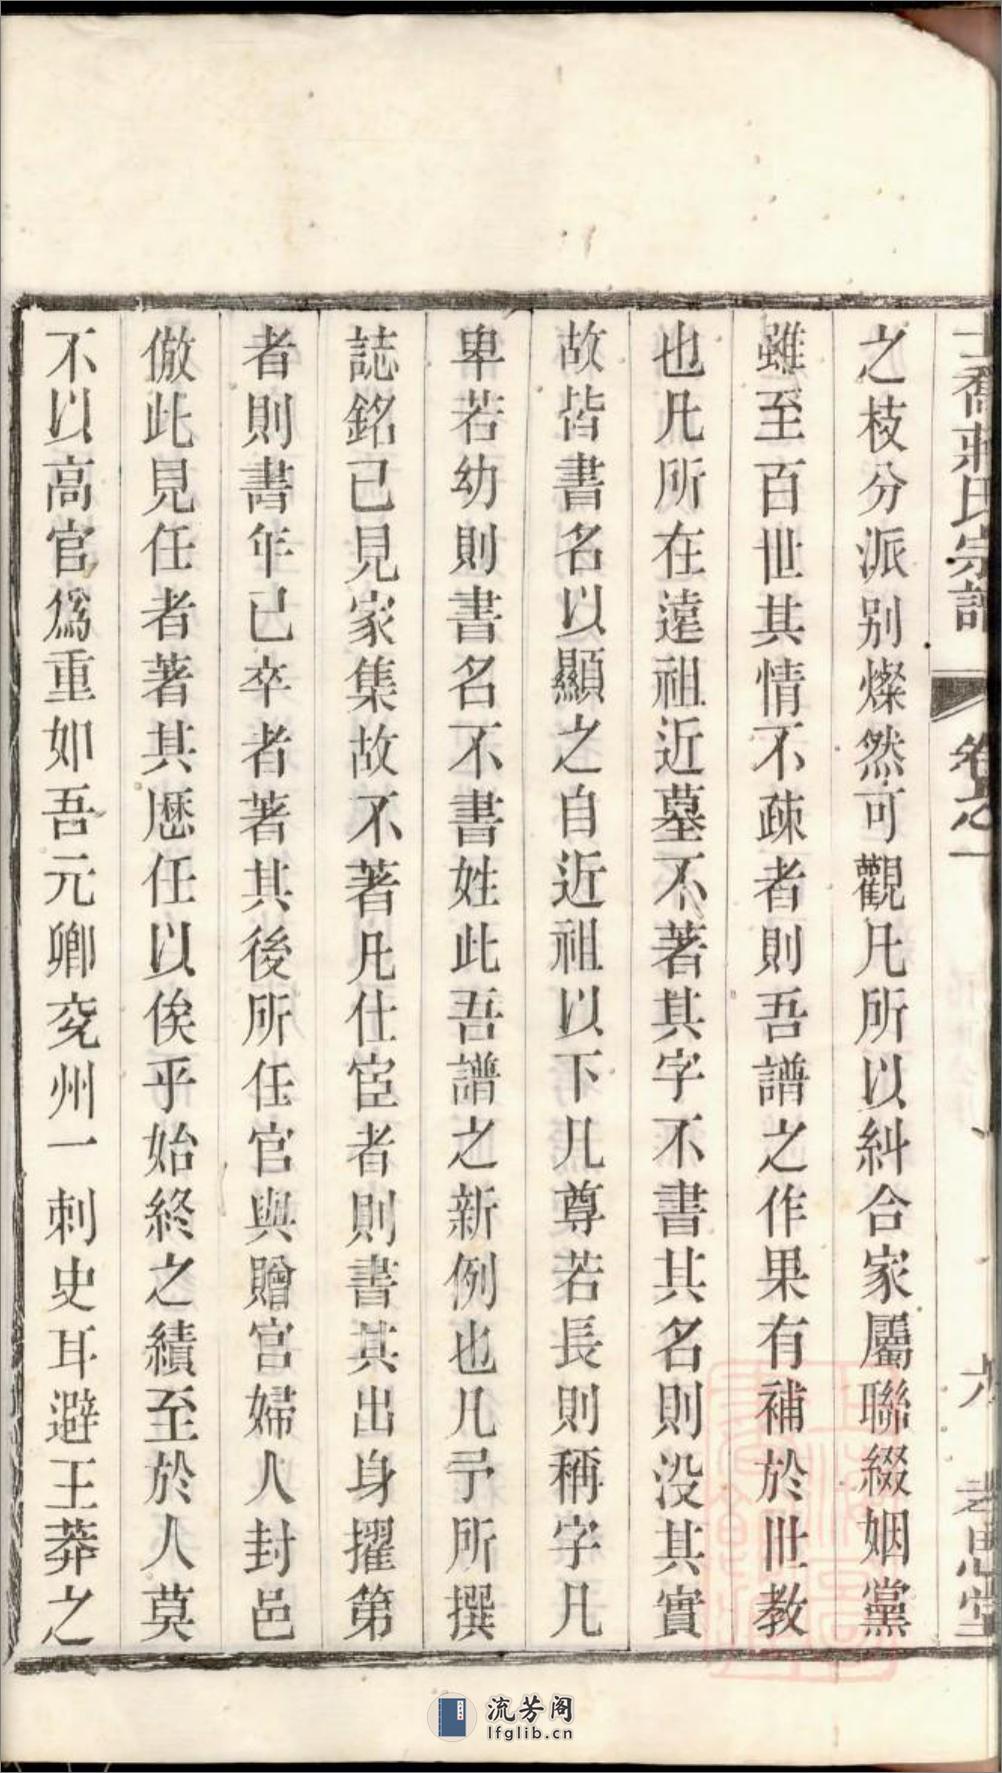 蔣氏宗譜 卷之一 孝思堂
之枝分派別燦然可觀凡所以糾合家屬聯綴姻黨
雖至百世其情不疎者則吾譜之作果有補於世教
也凡所在遠祖近墓不著其字不書其名則没其實
故皆書名以顯之自近祖以下凡尊若長則稱字凡
卑若幼則書名不書姓此吾譜之新例也凡予所撰
誌銘已見家集故不著凡仕宦者則書其出身擢第
者則書年已卒者著其後所任官與贈官婦人封邑
倣此見任者著其歷任以俟乎始終之績至於人莫
不以高官為重如吾元卿兖州一刺史耳避王莽之
流芳阁
lfglib.cn